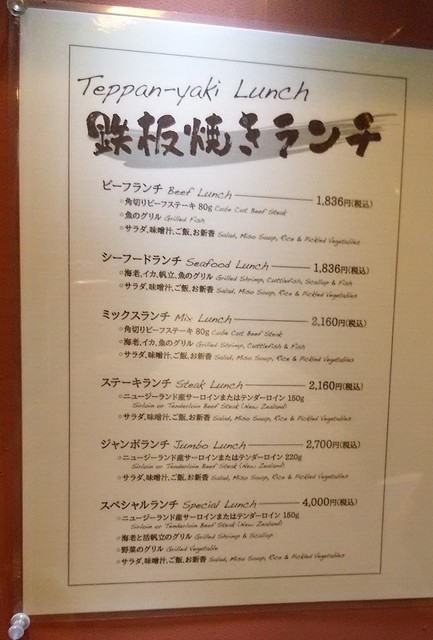 Teppan-yaki Lunch
鉄板焼きランチ
ビーフランチ Beef Lunch 1,836円(税込)
○角切りビーフステーキ 80g Cube Cut Beef Steak
○魚のグリル Grilled Fish
○サラダ,味噌汁,ご飯,お新香 Salad, Miso Soup, Rice & Pickled Vegetables
シーフードランチ Seafood Lunch 1,836円(税込)
○海老,イカ,帆立,魚のグリル Grilled Shrimp, Cuttlefish, Scallop & Fish
○サラダ,味噌汁,ご飯,お新香 Salad, Miso Soup, Rice & Pickled Vegetables
ミックスランチ Mix Lunch 2,160円(税込)
○角切りビーフステーキ 80g Cube Cut Beef Steak
○海老,イカ,魚のグリル Grilled Shrimp, Cuttlefish & Fish
○サラダ,味噌汁,ご飯,お新香 Salad, Miso Soup, Rice & Pickled Vegetables
ステーキランチ Steak Lunch 2,160円(税込)
○ニュージーランド産サーロインまたはテンダーロイン 150g
Sirloin or Tenderloin Beef Steak (New Zealand)
○サラダ,味噌汁,ご飯,お新香 Salad, Miso Soup, Rice & Pickled Vegetables
ジャンボランチ Jumbo Lunch 2,700円(税込)
○ニュージーランド産サーロインまたはテンダーロイン 220g
Sirloin or Tenderloin Beef Steak (New Zealand)
○サラダ,味噌汁,ご飯,お新香 Salad, Miso Soup, Rice & Pickled Vegetables
スペシャルランチ Special Lunch 4,000円(税込)
○ニュージーランド産サーロインまたはテンダーロイン 150g
Sirloin or Tenderloin Beef Steak (New Zealand)
○海老と活帆立のグリル Grilled Shrimp & Scallop
○野菜のグリル Grilled Vegetable
○サラダ,味噌汁,ご飯,お新香 Salad, Miso Soup, Rice & Pickled Vegetables